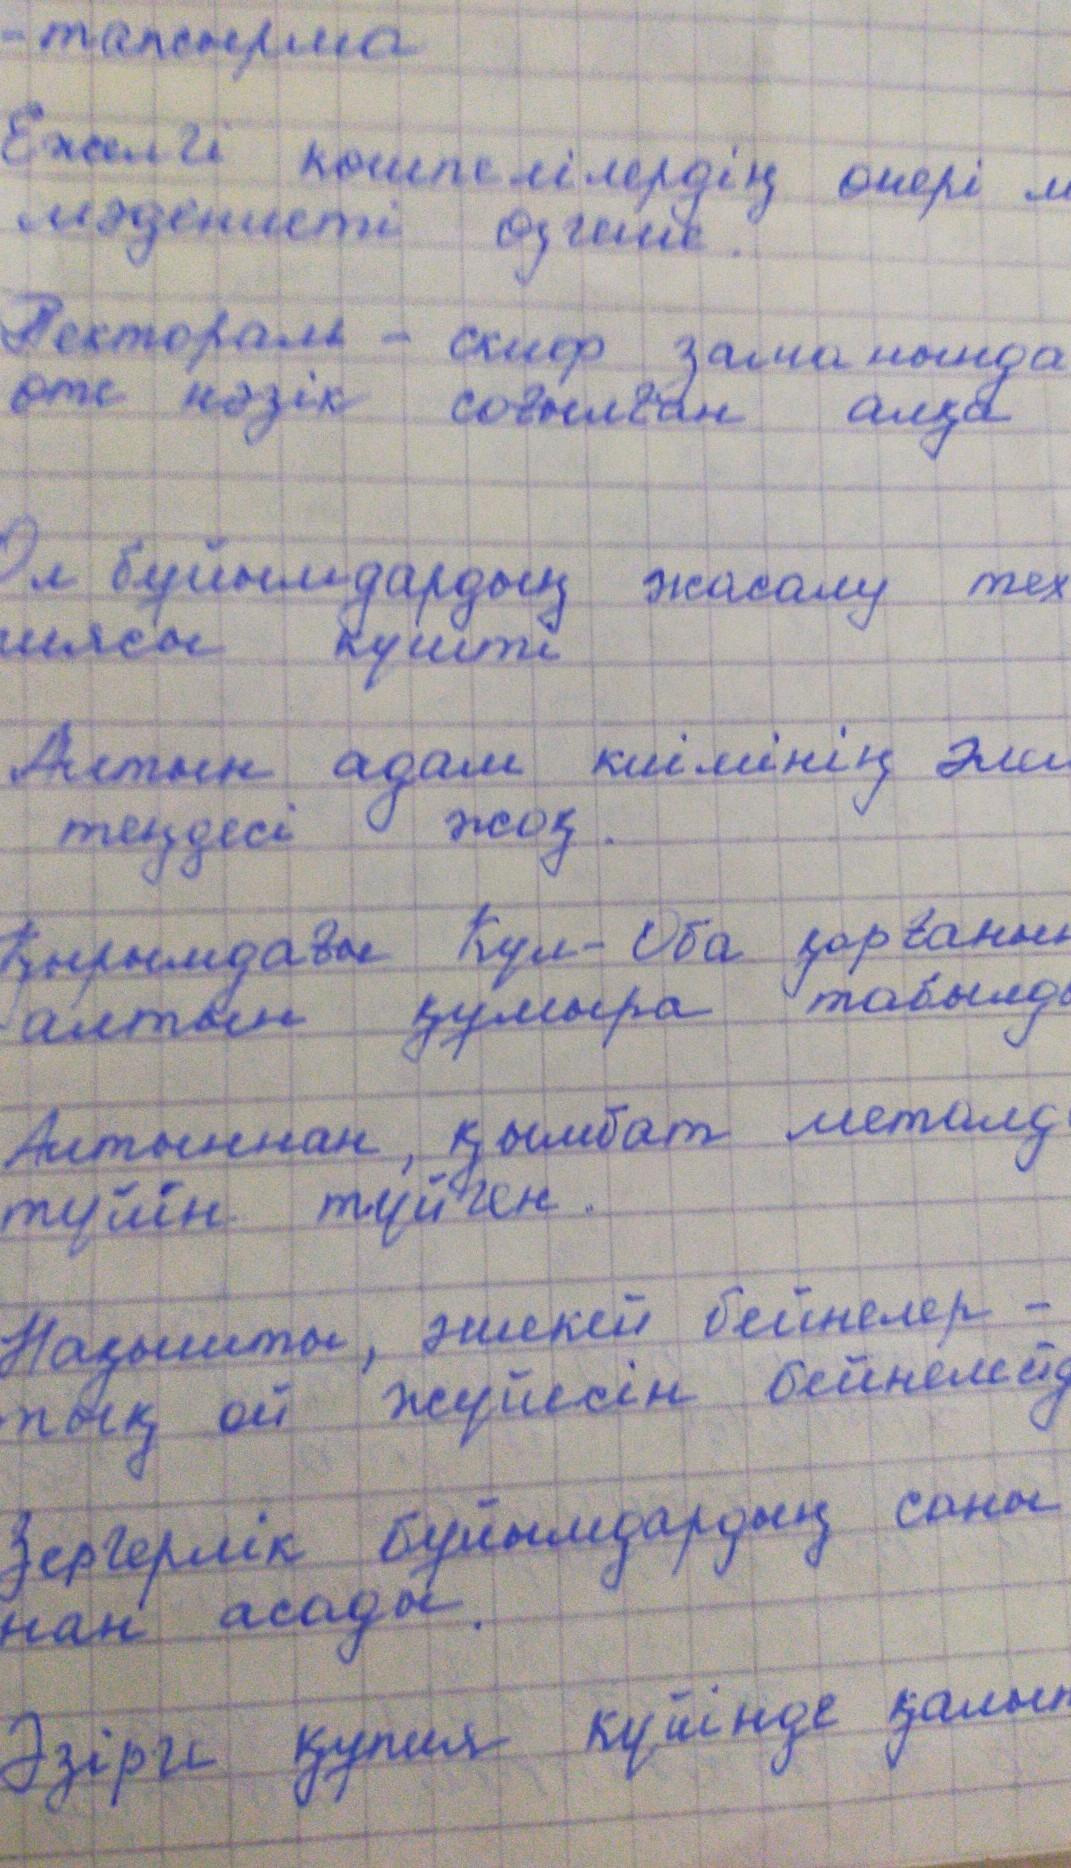 -тапсырма
Ежелгі көшпелілердің өнері м
мәдениеті өзгеше.
Пектораль - скиф заманында
өте нәзік соғылған алқа
Ол бұйымдардың жасалу тех
иясы күшті
Алтын адам киімінің әлем
теңдесі жоқ.
Қырымдағы Кул-Оба қорғанын
алтын құмыра табылды
Алтыннан, қымбат металд
түйін түйген.
Нақышты, әшекей бейнелер -
тық ой жүйесін бейнелейд
Зергерлік бұйымдардың саны
нан асады.
Әзірге құпия күйінде қалып